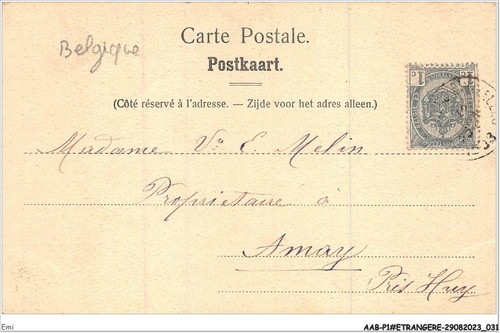 Belgique
Carte Postale.
Postkaart.
(Côté réservé à l'adresse. – Zijde voor het adres alleen.)
1 1
Madame Ve E. Melin
Propriétaire à
Amay
Près Huy
Emi
AAB-P1#ETRANGERE-29082023_031